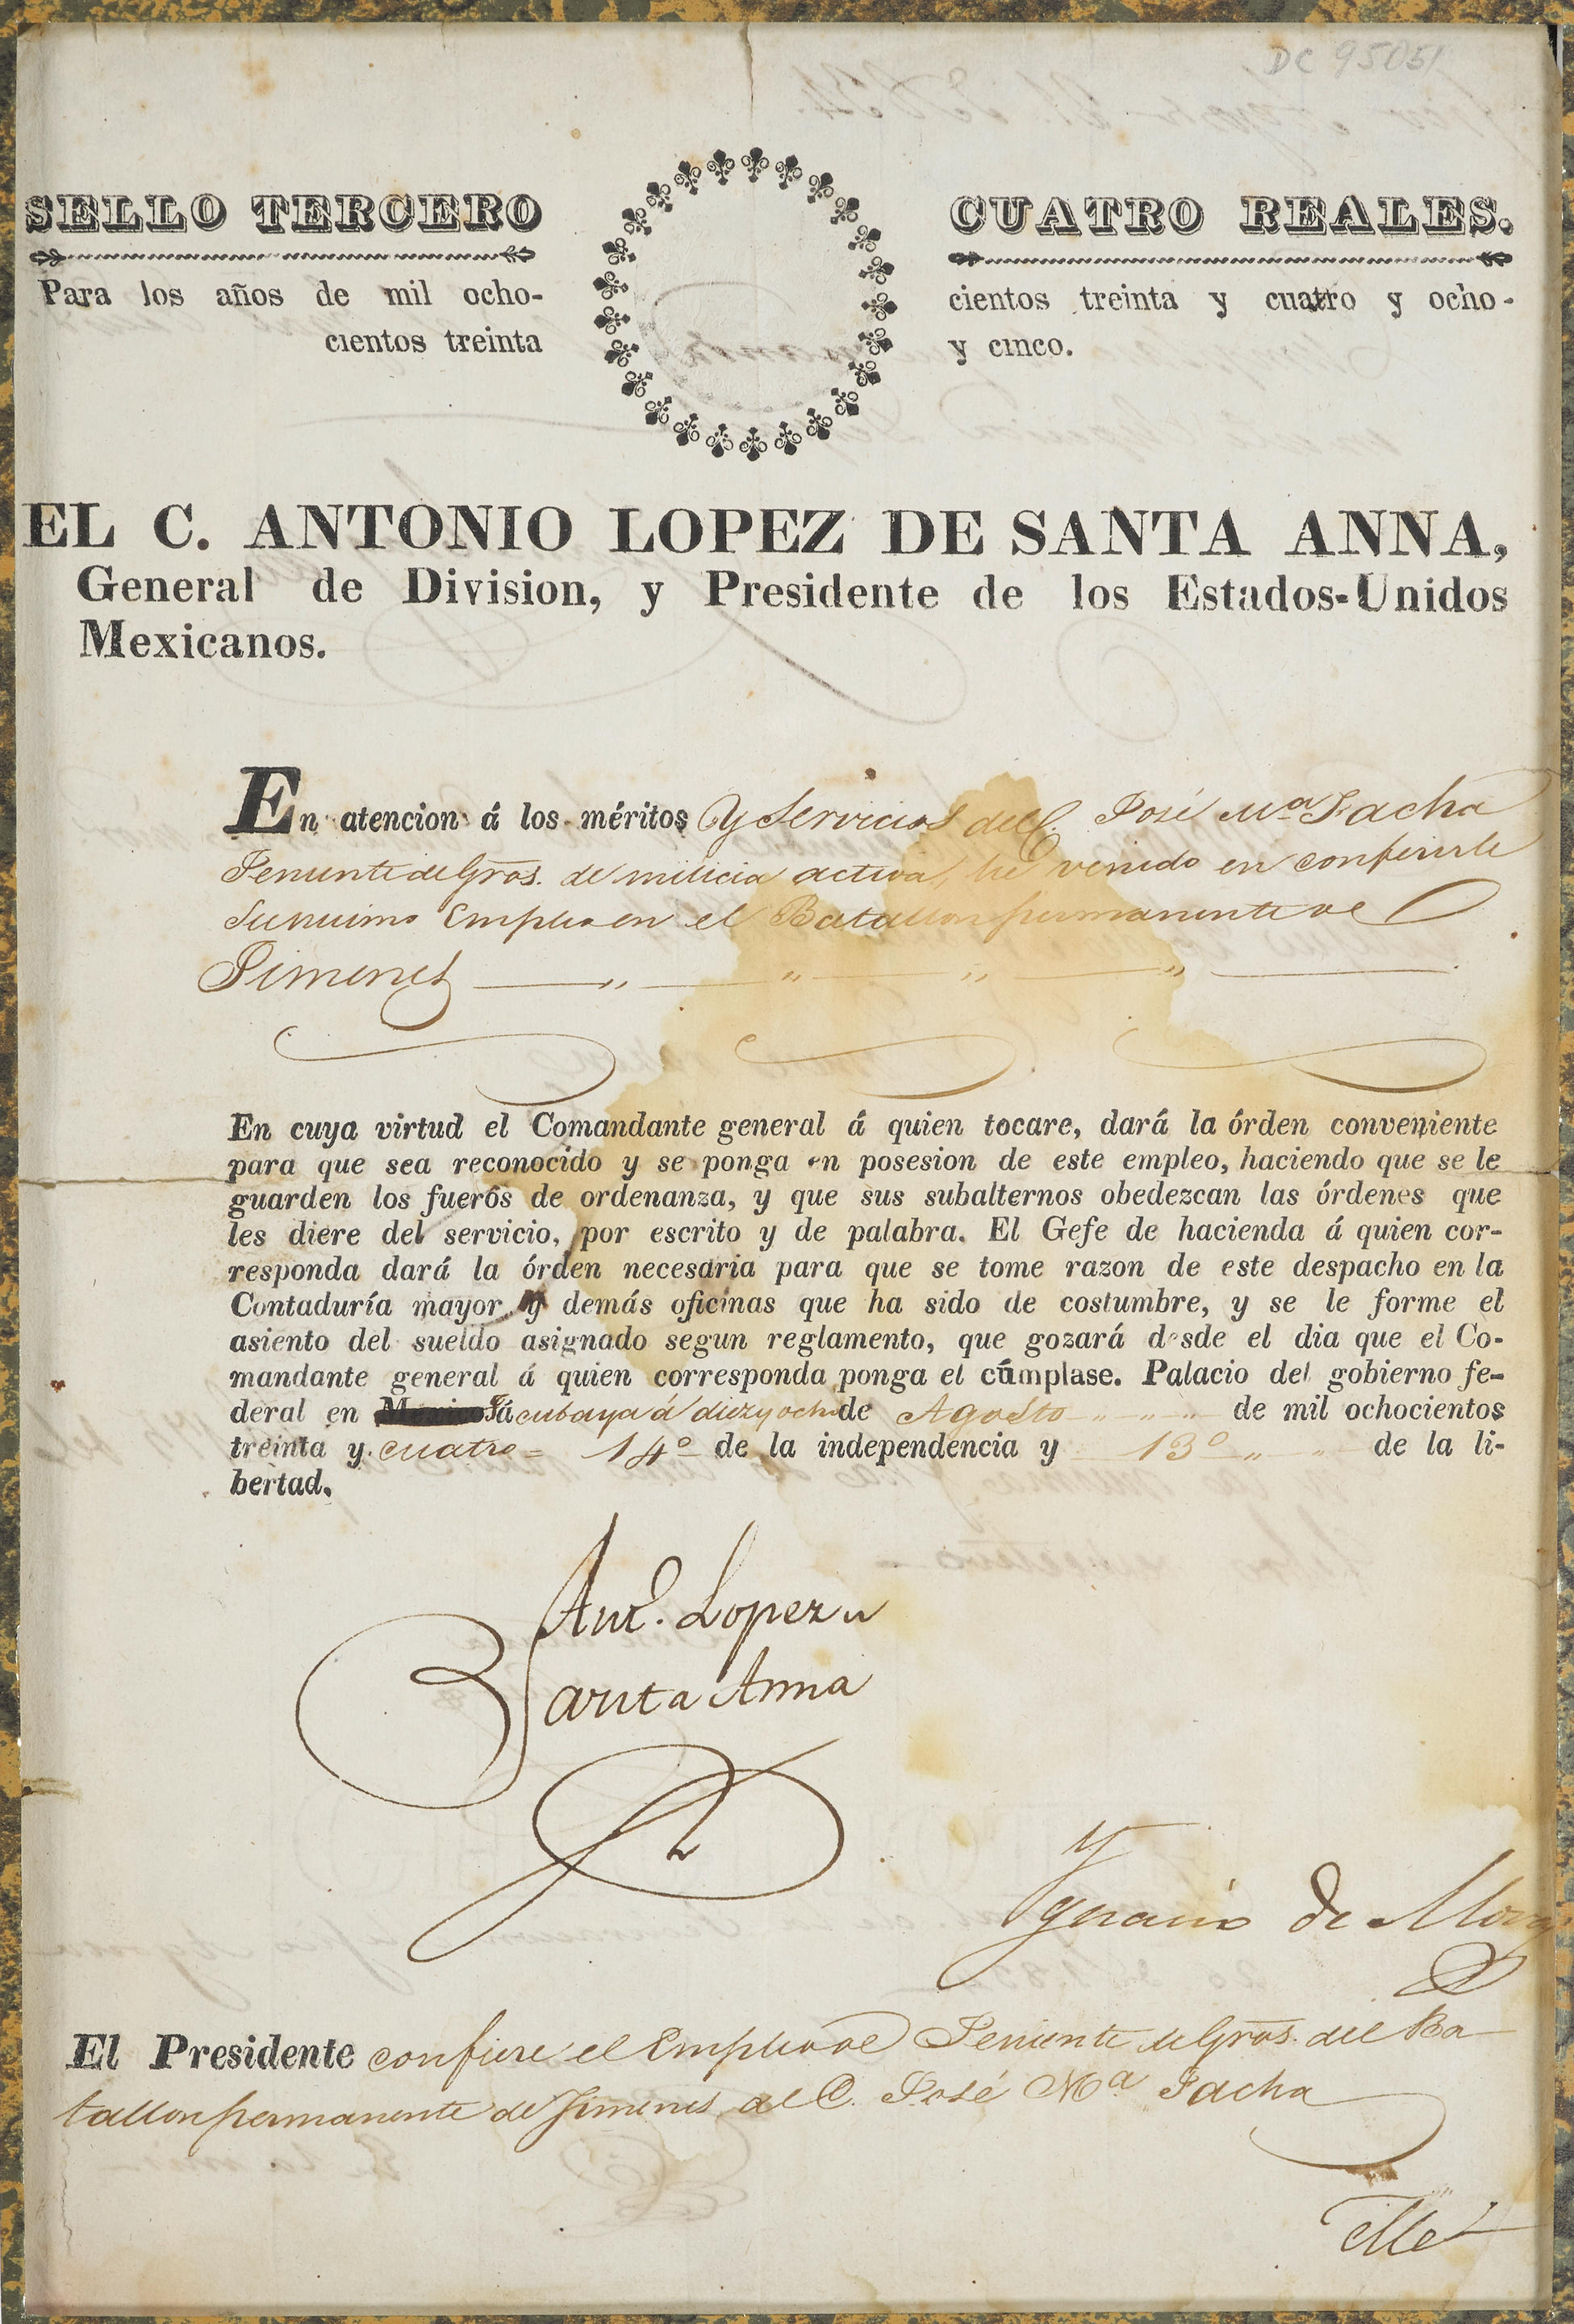 DC 95051
SELLO TERCERO
CUATRO REALES.
Para los años de mil ocho-
cientos treinta
cientos treinta y cuatro y ocho-
y cinco.
EL C. ANTONIO LOPEZ DE SANTA ANNA,
General de Division, y Presidente de los Estados-Unidos
Mexicanos.
En atencion á los méritos y Servicios del C. José Mª Pacha
Teniente de Gros. de milicia activa, he venido en conferirle
su mismo Empleo en el Batallon permanente de
Jimenes
En cuya virtud el Comandante general á quien tocare, dará la órden conveniente
para que sea reconocido y se ponga en posesion de este empleo, haciendo que se le
guarden los fueros de ordenanza, y que sus subalternos obedezcan las órdenes que
les diere del servicio, por escrito y de palabra. El Gefe de hacienda á quien cor-
responda dará la órden necesaria para que se tome razon de este despacho en la
Contaduría mayor y demás oficinas que ha sido de costumbre, y se le forme el
asiento del sueldo asignado segun reglamento, que gozará desde el dia que el Co-
mandante general á quien corresponda ponga el cúmplase. Palacio del gobierno fe-
deral en Tacubaya á diez y ocho de Agosto de mil ochocientos
treinta y cuatro = 14º de la independencia y 13º de la li-
bertad.
Antº. Lopez de
Santa Anna
Ygnacio de Mora
El Presidente confiere el Empleo de Teniente de Gros. del Ba
tallon permanente de Jimenes al C. José Mª Pacha